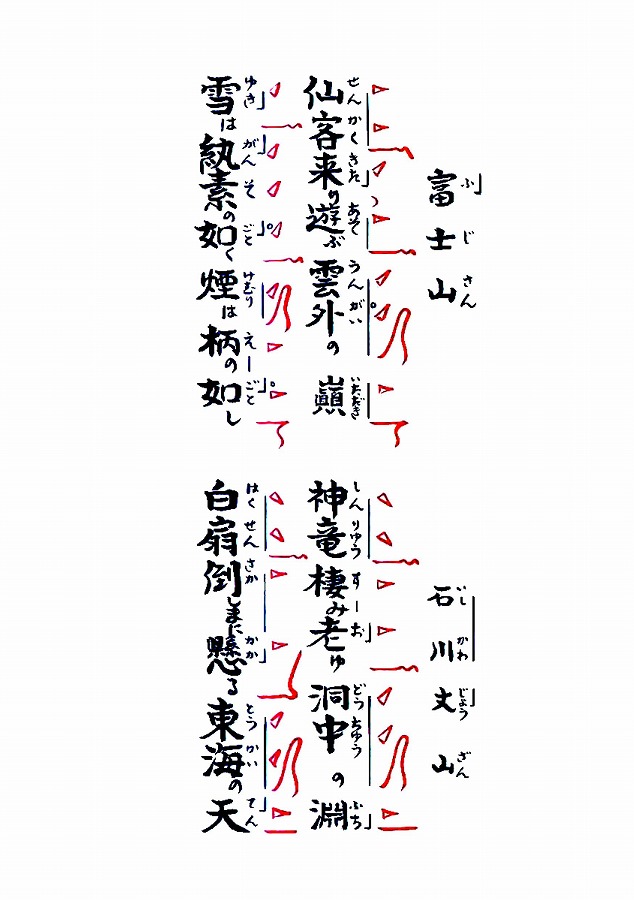 富士山
ふじさん
石川丈山
いしかわじょうざん
仙客来り遊ぶ雲外の巓
せんかくきたあそうんがいいただき
神竜棲み老ゆ洞中の淵
しんりゅうすーおどうちゅうふち
雪は紈素の如く煙は柄の如し
ゆきがんそごとけむりえーごと
白扇倒しまに懸る東海の天
はくせんさかかかとうかいてん